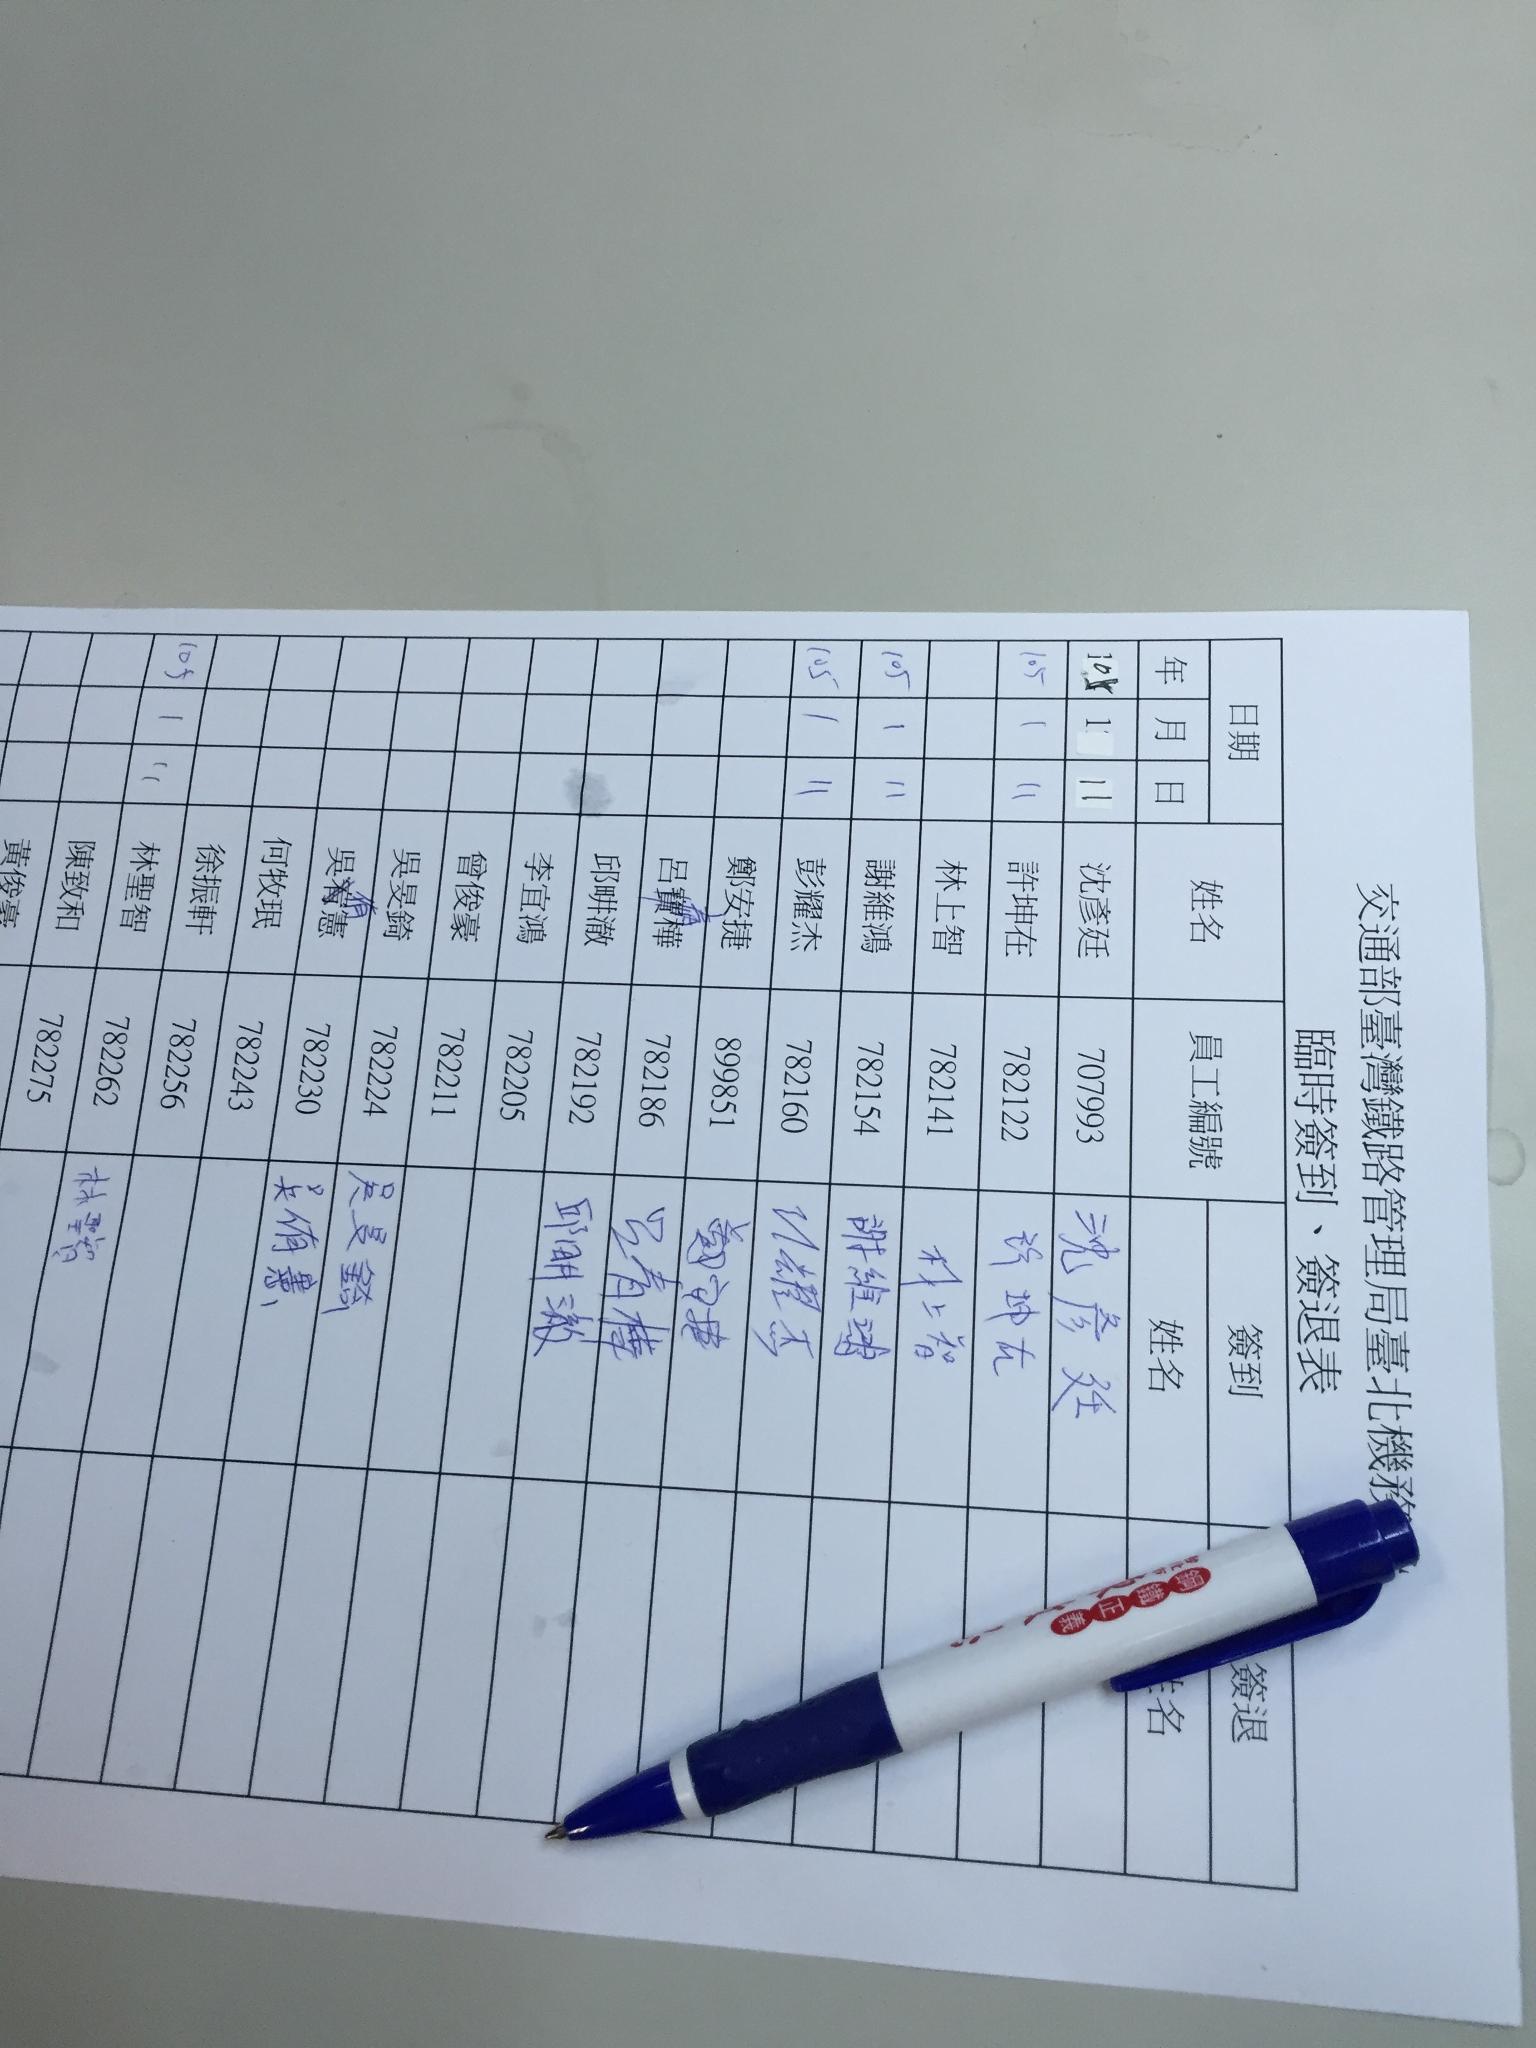 交通部臺灣鐵路管理局臺北機務
臨時簽到、簽退表
日期 姓名 員工編號 簽到 簽退
年 月 日 姓名 姓名
105 1 11 沈彥廷 707993 沈彥廷
105 1 11 許坤在 782122 許坤在
林上智 782141 林上智
105 1 11 謝維鴻 782154 謝維鴻
105 1 11 彭耀杰 782160 耀杰
鄭安捷 899851 鄭安捷
呂樺 782186 呂青樺
邱畊澈 782192 邱畊澈
李宜鴻 782205
曾俊豪 782211
吳旻錡 782224 吳旻錡
吳侑憲 782230 吳侑憲
何牧珉 782243
徐振軒 782256
105 1 11 林聖智 782262 林聖智
陳致和 782275
黃俊豪
鋼鐵正義